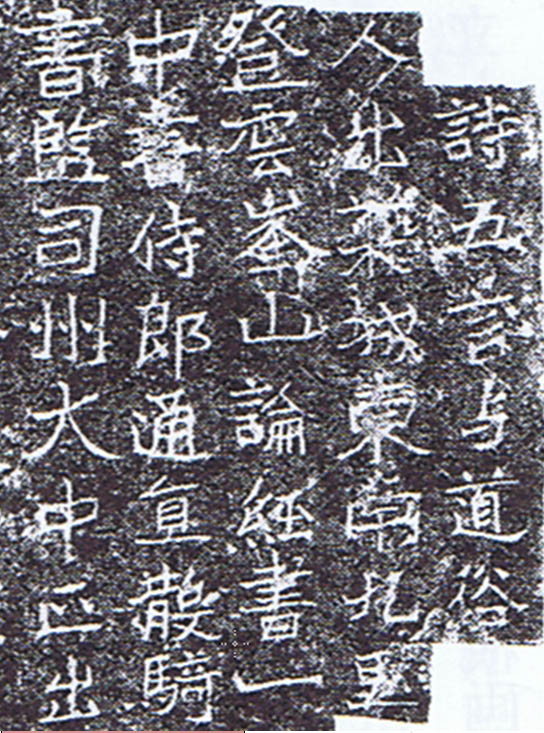 詩五言与道俗
人出萊城東南九里
登雲峯山論經書一
中書侍郎通直散騎
書監司州大中正出